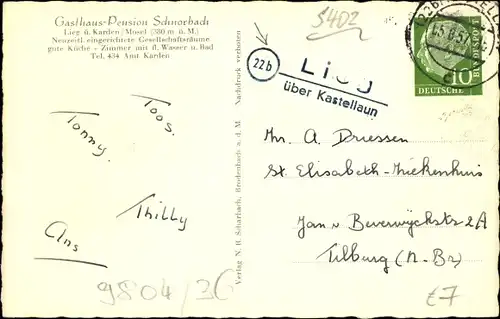 Gasthaus-Pension Schnorbach
Lieg ü. Karden/Mosel (380 m ü. M.)
Neuzeitl. eingerichtete Gesellschaftsräume
gute Küche - Zimmer mit fl. Wasser u. Bad
Tel. 434 Amt Karden
Toos.
Tonny.
Thilly
Ans
9804/36
Verlag N. B. Scharbach, Brodenbach a. d. M. Nachdruck verboten
S402
22b
Lieg
über Kastellaun
10
DEUTSCHE
BUNDESPOST
Mr. A. Driessen
St. Elisabeth-Ziekenhuis
Jan v. Beverwijckstr 2A
Tilburg (N-Br)
£7